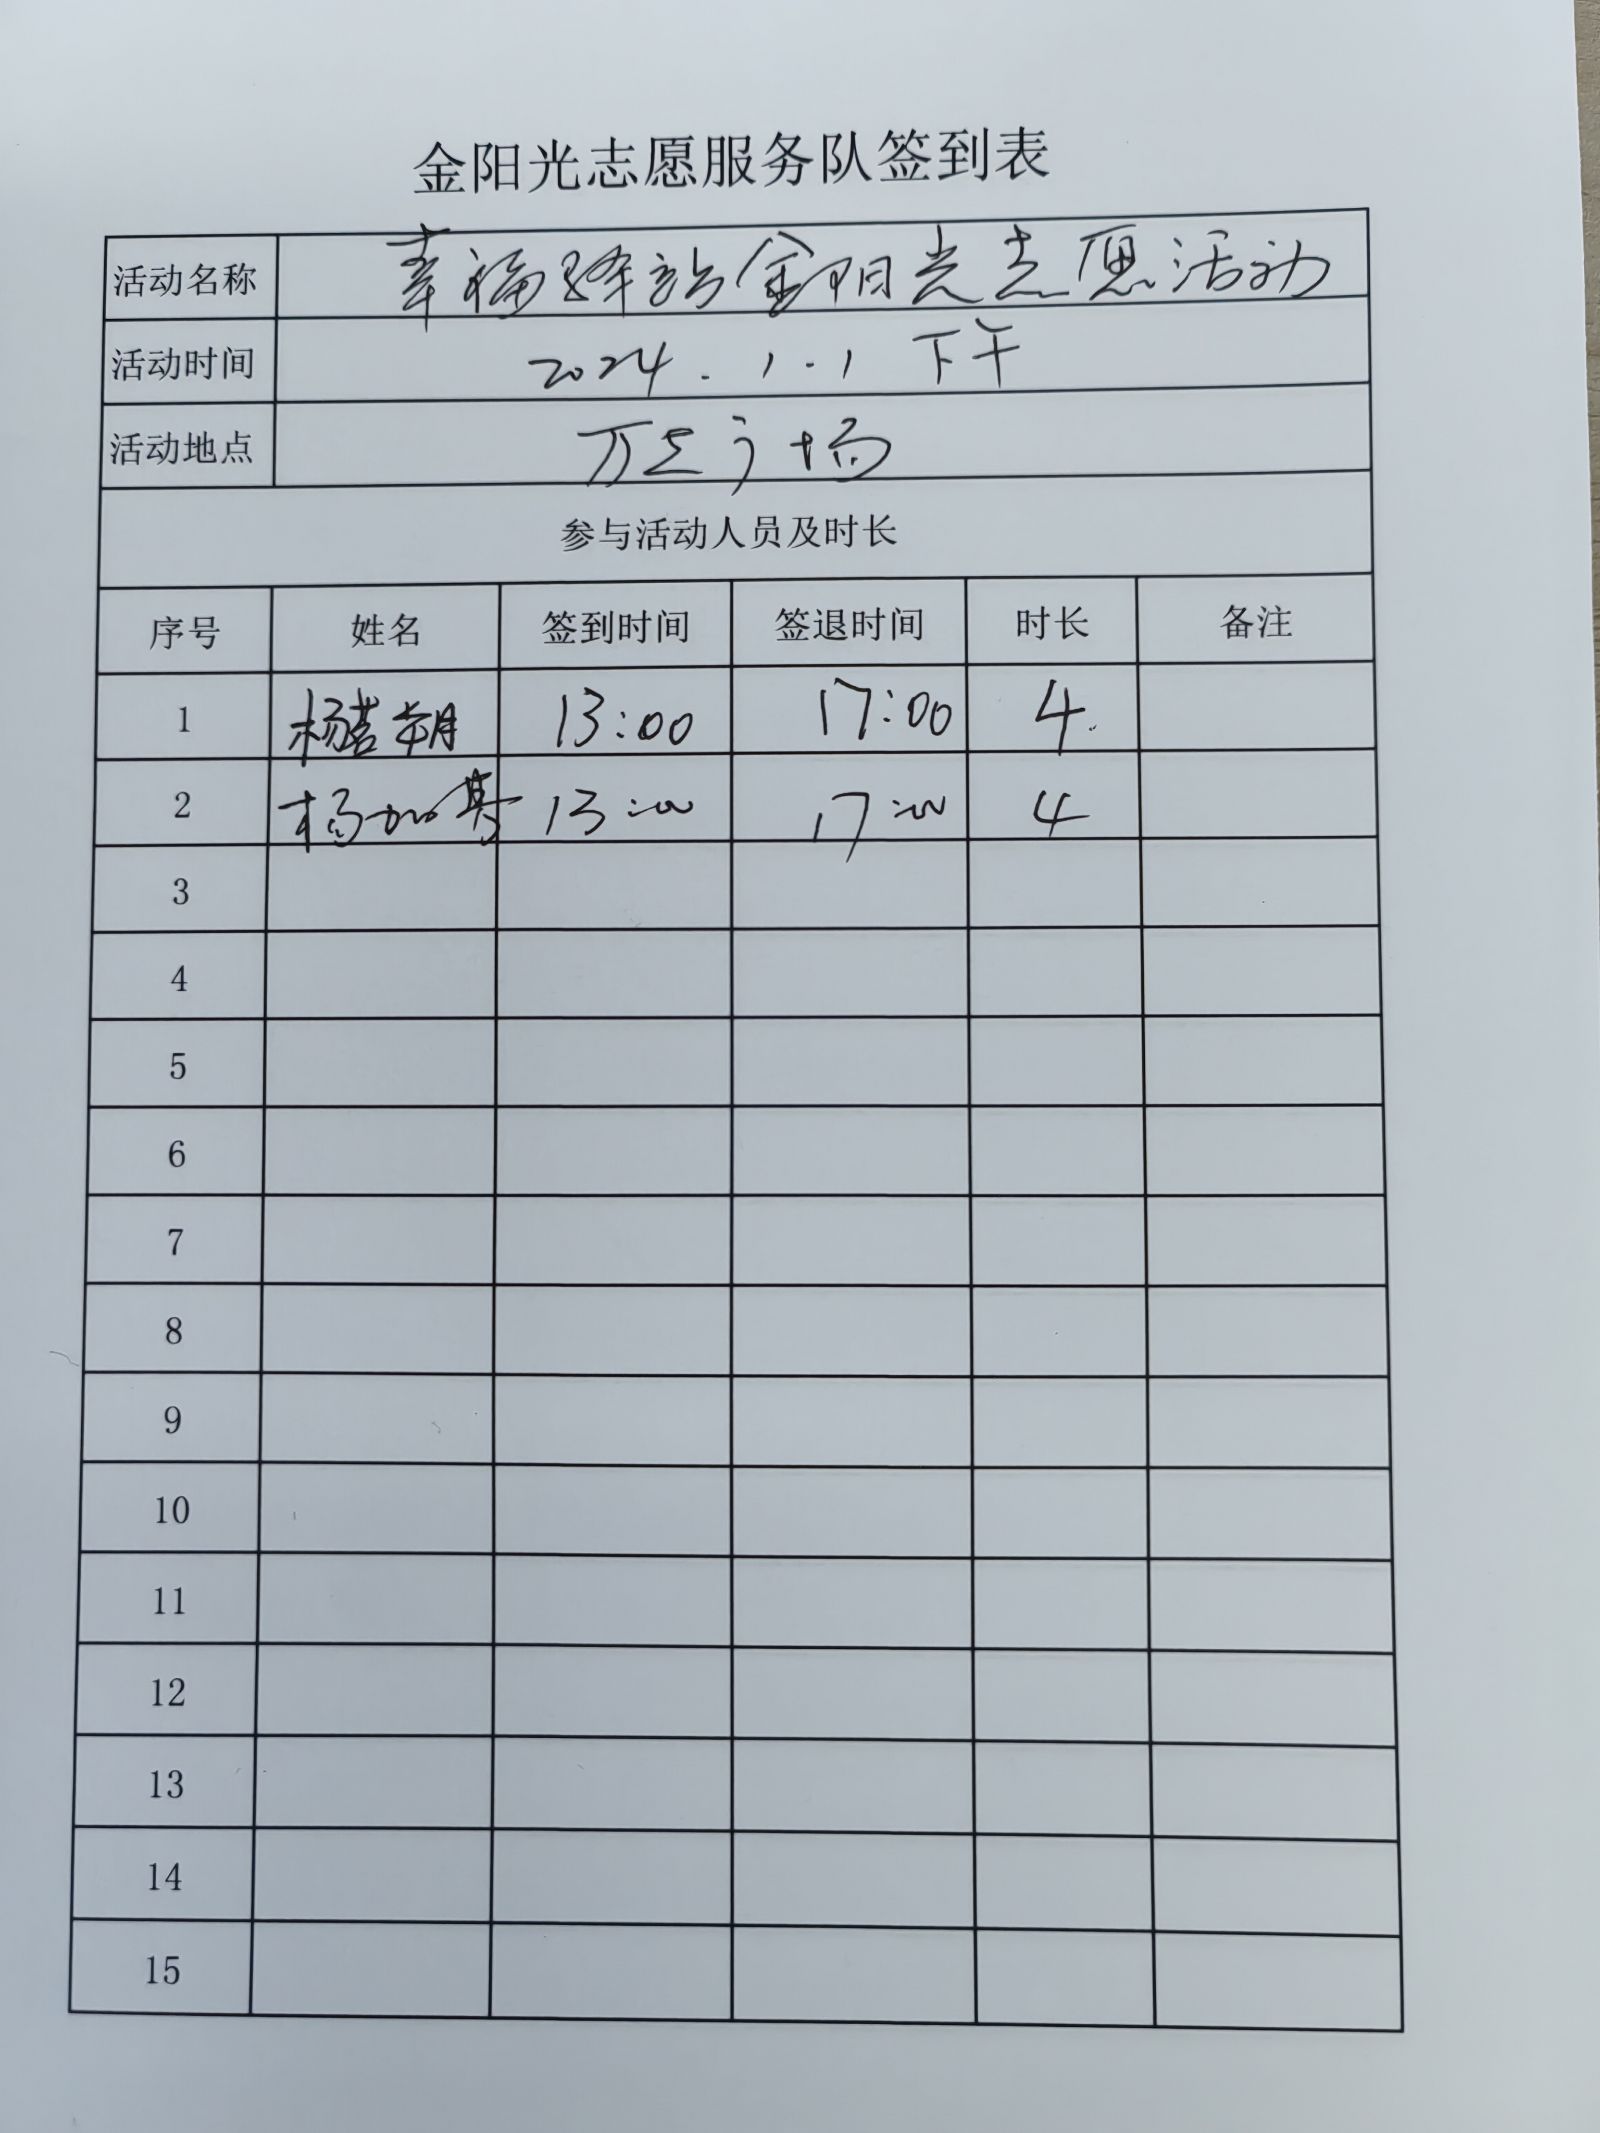 金阳光志愿服务队签到表
活动名称 幸福驿站金阳光志愿活动
活动时间 2024.1.1 下午
活动地点 万达广场
参与活动人员及时长
序号 姓名 签到时间 签退时间 时长 备注
1 13:00 17:00 4.
2 杨加其 13:00 17:00 4
3
4
5
6
7
8
9
10
11
12
13
14
15